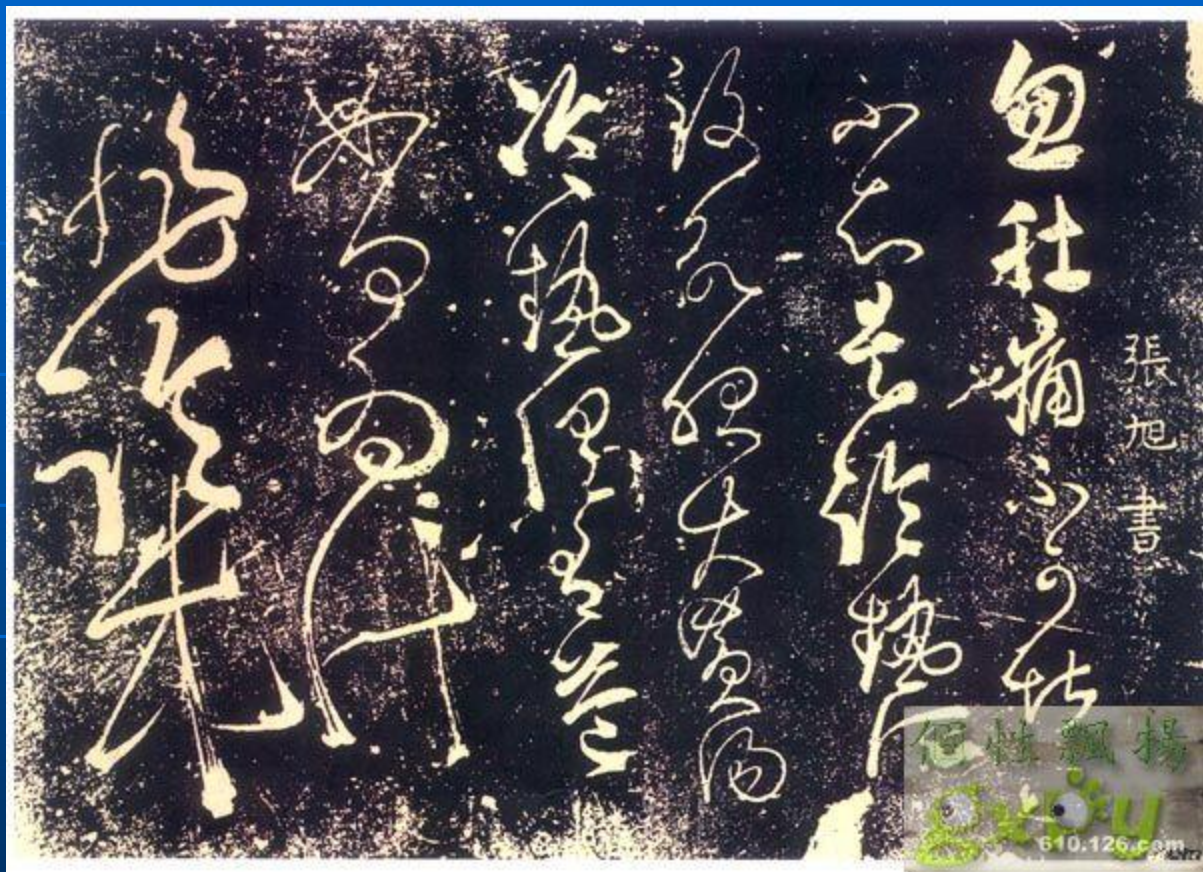 張旭書
忽肚痛不可堪
不知是冷熱所
致欲服大黃湯
冷熱俱有益
如何為計
個性飄揚
610.126.com